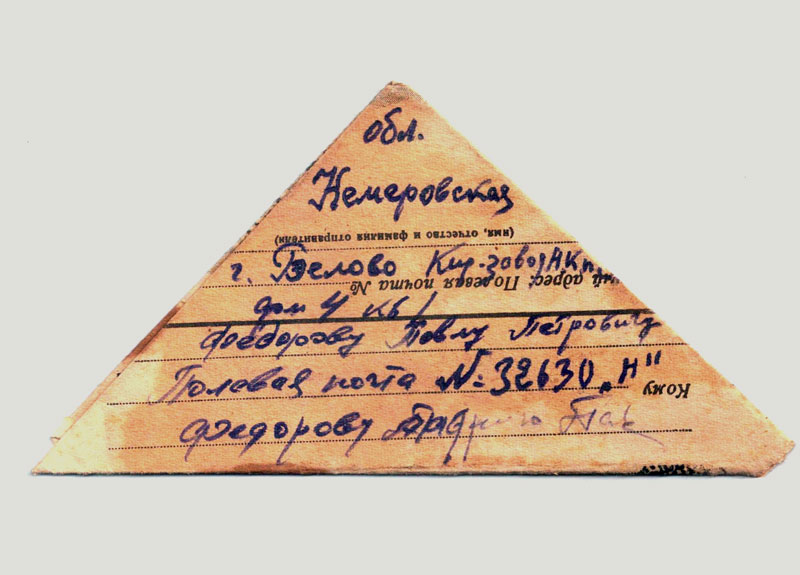 обл.
Кемеровская
(имя, отчество и фамилия отправителя)
г. Белово Кир-завод
адрес: Полевая почта №
дом 4 кв 1
Федорову Павлу Петровичу
Полевая почта №=32630 „Н"
Кому
Федорову